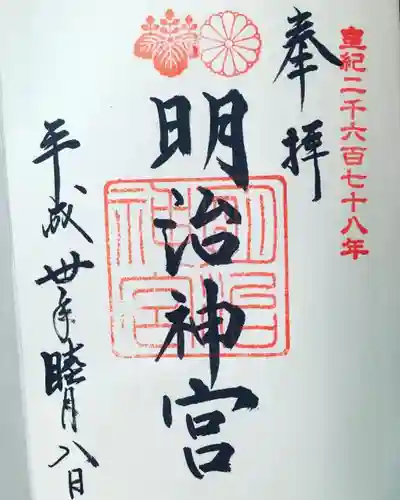 皇紀二千六百七十八年
奉拝
明治神宮
明治
神宮
平成卅年睦月八日